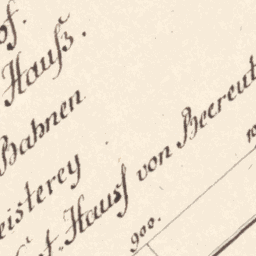 of.
Hauſz.
Bahnen
eisterey
st. Hausſ von Beereut
900.
10